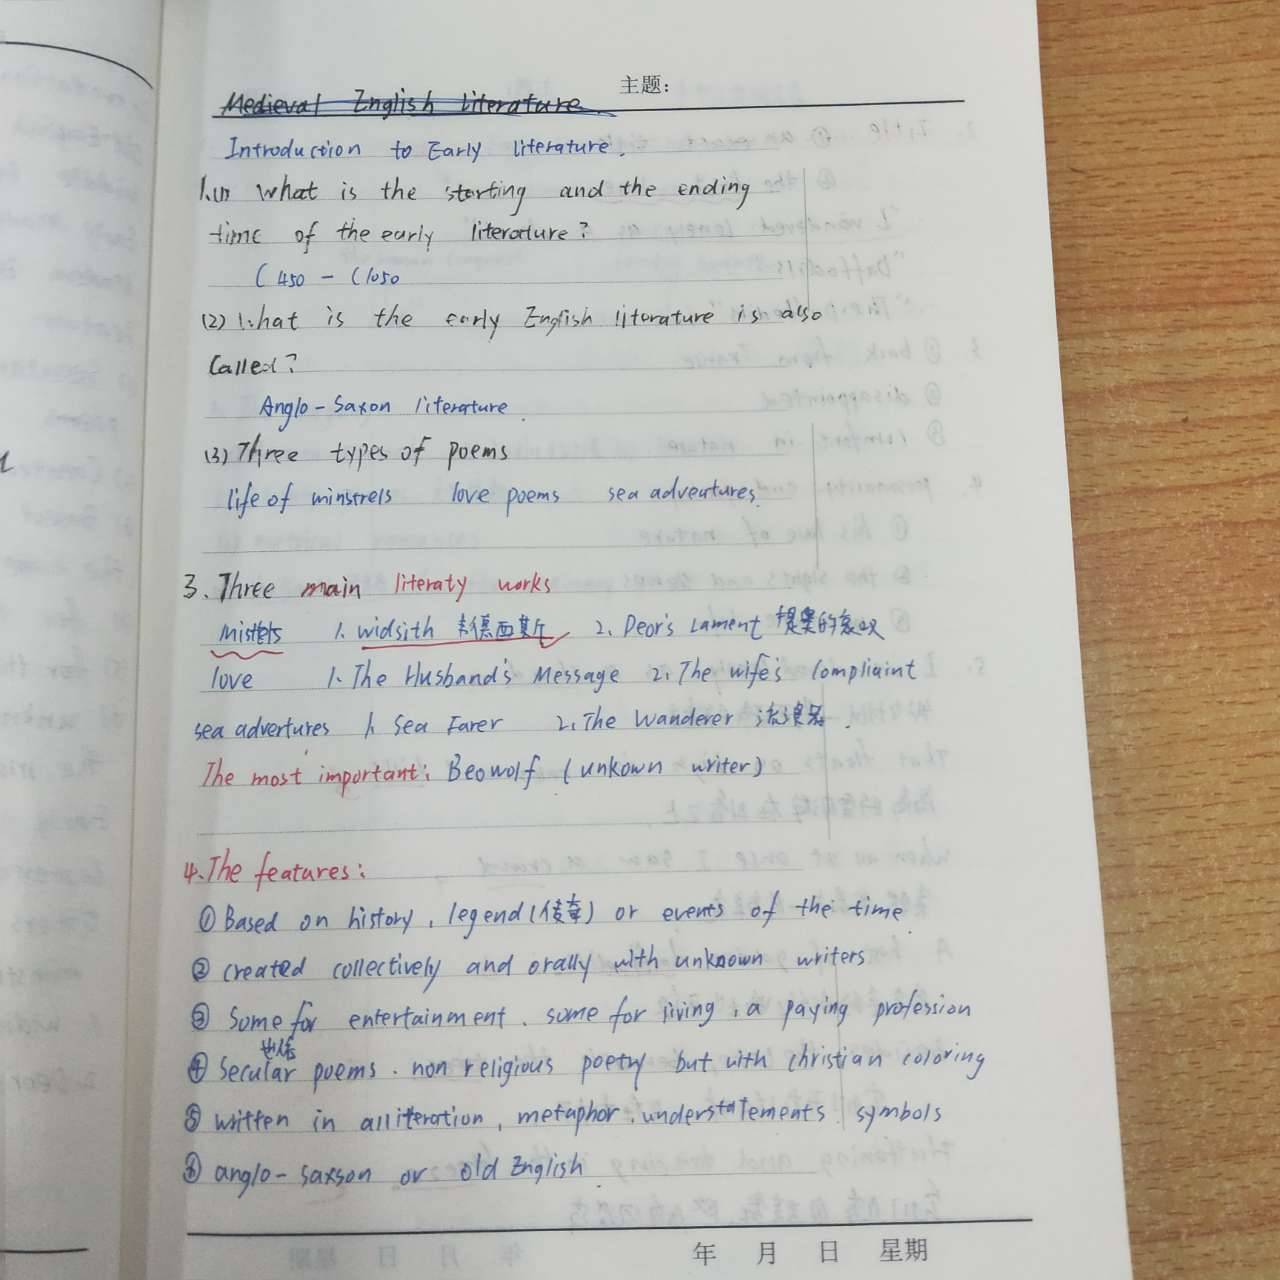 主题：
Medieval English literature
Introduction to Early literature.
1.(1) What is the starting and the ending
time of the early literature?
C450 - C1050
(2) What is the early English literature is also
Called?
Anglo-Saxon literature
(3) Three types of poems
life of minstrels love poems sea adventures
3. Three main literaty works
1. widsith 韦德西斯 2. Deor's Lament 提奥的哀叹
love 1. The Husband's Message 2. The wife's Compliaint
sea advertures 1. Sea Farer 2. The Wanderer 流浪者.
The most important: Beowolf (unkown writer)
4. The features:
① Based on history, legend(传奇) or events of the time
② created collectively and orally with unknown writers
③ Some for entertainment. some for living, a paying profession
世俗
④ Secular poems. non religious poetry but with christian coloring
⑤ written in alliteration, metaphor, understatements symbols
⑥ anglo-saxson or old English
年 月 日 星期